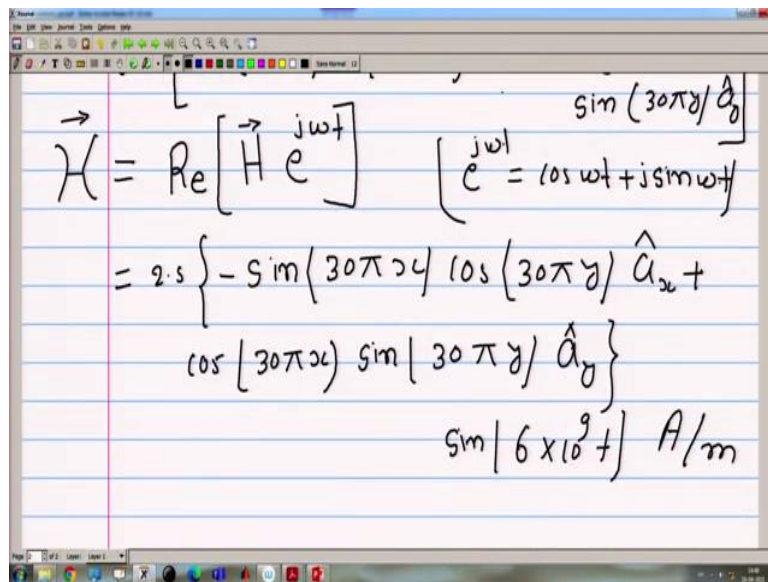 File Edit View Journal Tools Options Help
Sans Normal 12
sin (30πy) â_y]
H⃗ = Re [ H⃗ e^{jωt} ] [ e^{jωt} = cos ωt + j sin ωt ]
= 2.5 { - sin (30πx) cos (30πy) â_x +
cos (30πx) sin (30πy) â_y }
sin (6 × 10^9 t) A/m
Page 2 of 2 Layer: Layer 1